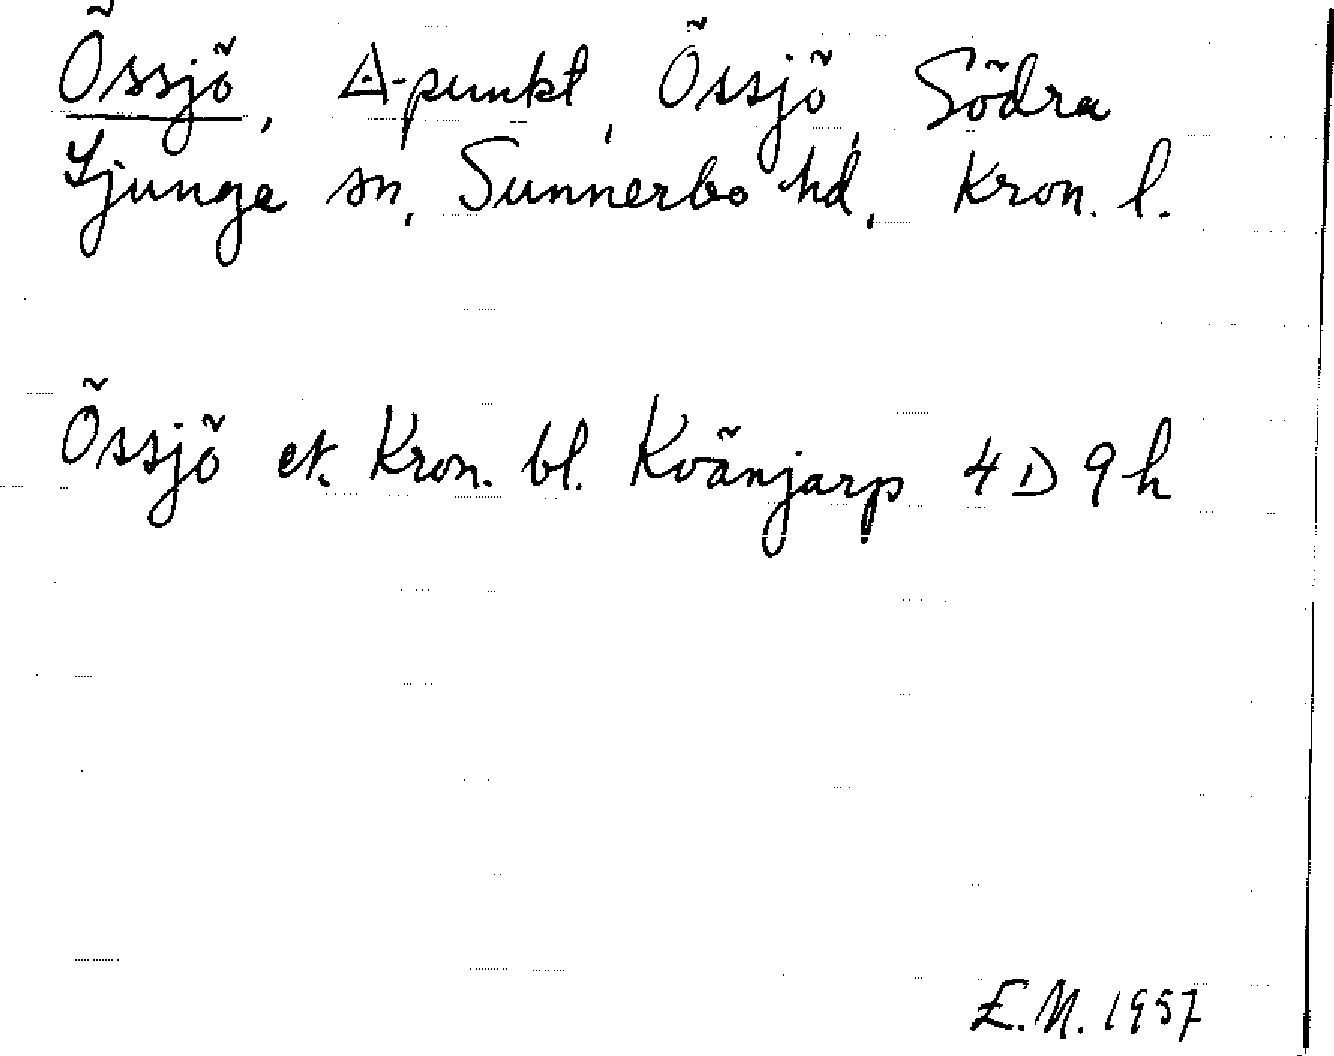 Össjö, △-punkt, Össjö, Södra
Ljunga sn, Sunnerbo hd, Kron. l.
Össjö ek. Kron. bl. Kvänjarp 4D9h
E.M. 1957